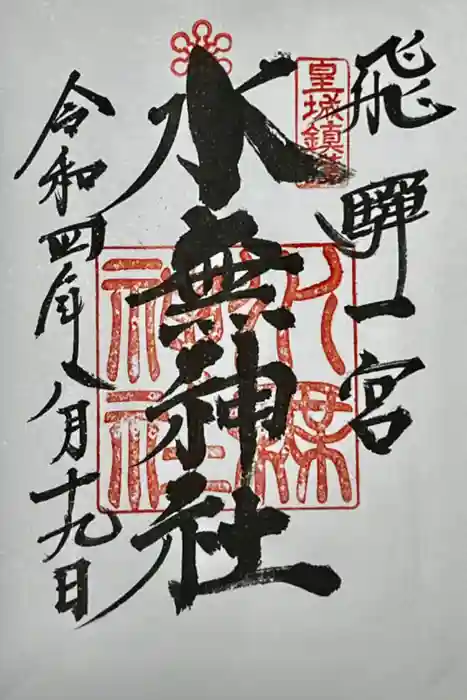 飛騨一宮
皇城鎮護
水無神社
令和四年八月十九日